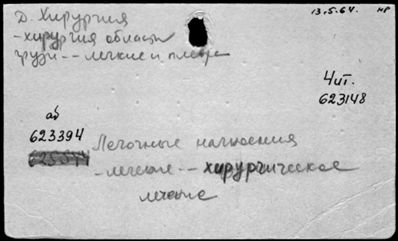 13.5.64. нр
Д. Хирургия
-хирургия области
груди -- легкие и плевра
Чит.
623148
аб
623394
Легочные нагноения
-лечение -- хирургическое
лечение